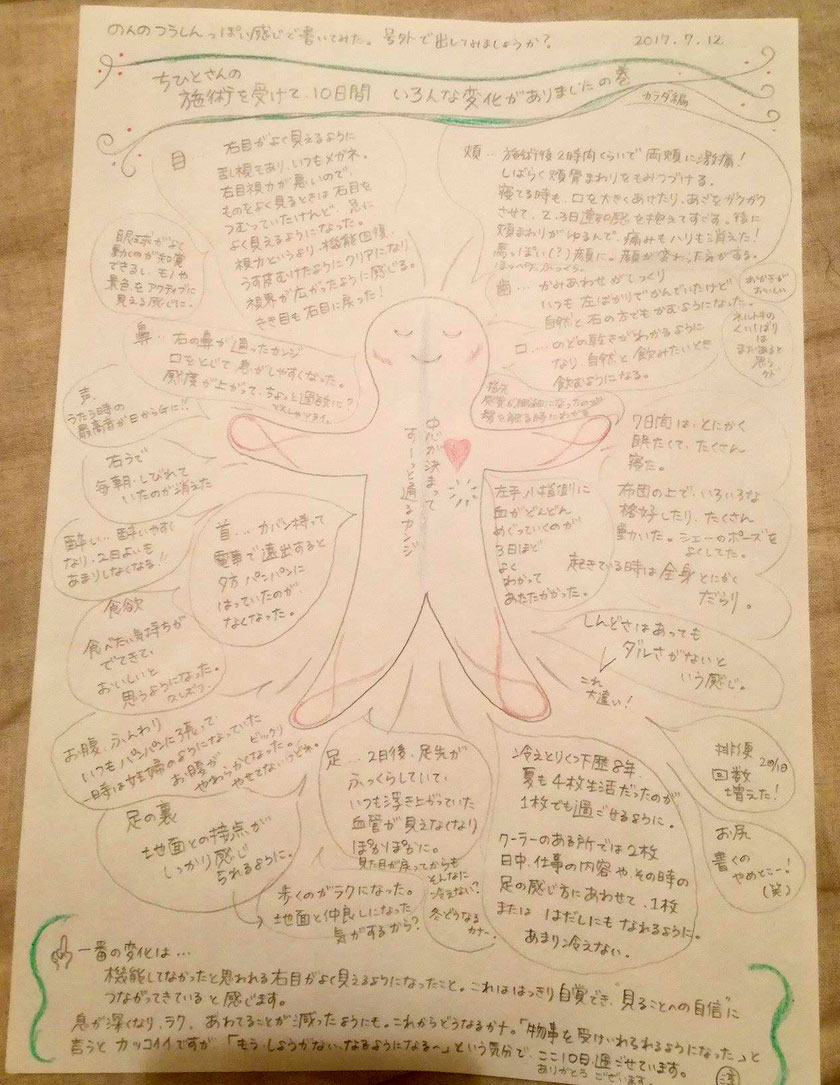 のんのつうしん っぽい感じで書いてみた。号外で出してみましょうか? 2017.7.12
ちひとさんの
施術を受けて、10日間 いろんな変化がありましたの巻
カラダ編
目… 右目がよく見えるように
乱視であり、いつもメガネ。
右目視力が悪いので、
ものをよく見るときは右目を
つむっていたけれど、急に
よく見えるようになった。
視力というより、機能回復。
うす皮むけたようにクリアになり
視界が広がったように感じる。
きき目も右目に戻った!
眼球がよく
動くのが知覚
できるし、モノや
景色をアクティブに
見える感じに。
頬… 施術後2時間くらいで両頬に激痛!
しばらく頬骨まわりをもみつづける。
寝てる時も、口を大きくあけたり、あごをガクガク
させて、2、3日違和感を抱えてすごす。後に
頬まわりがゆるんで、痛みもハリも消えた!
馬っぽい(?)顔に。顔が変わった気がする。
ほっぺた、ふっくら。
歯… かみあわせがしっくり
いつも左ばかりでかんでいたけど
自然と右の方でもかむようになった。
おかきが
おいしい
口… のどの乾きがわかるように
なり、自然と飲みたいとき
飲むようになる。
ホルトキの
くいしばり
は
まだあると
思う
鼻… 右の鼻が通ったカンジ
口をとじて息がしやすくなった。
感度が上がって、ちょっと過敏に?
声
うたう時の
最高音が日からGに!!
指先
感覚が繊細になったのが
をる時にわかる
中心が決まって
すーっと通るカンジ
右うで
毎朝、しびれて
いたのが消えた
7日間は、とにかく
眠たくて、たくさん
寝た。
布団の上で、いろいろな
格好したり、たくさん
動いた。シェーのポーズを
よくしてた。
起きている時は全身とにかく
だらり。
左手小指側に
血がどんどん
めぐっていくのが
3日ほど
よく
わかって
あたたかかった。
酔い… 酔いやすく
なり、2日よいも
あまりしなくなる!!
首… カバン持って
電車で遠出すると
夕方パンパンに
はっていたのが、
なくなった。
しんどさはあっても
ダルさがないと
いう感じ。
これ
大違い!
食欲
食べたい気持ちが
でてきて、
おいしいと
思うようになった。
お腹、ふんわり
いつもパンパンに張って
一時は妊婦のようになっていた
お腹がビックリ
やわらかくなった。
やせてないけどネ。
足… 2日後、足先が
ふっくらしていて
いつも浮き上がっていた
血管が見えなくなり
ぽかぽかに。
見た目が戻ってからも
そんなに
冷えない?
冬どうなる
カナー。
冷えとりくつ下歴8年、
夏も4枚生活だったのが
1枚でも過ごせるように。
クーラーのある所では2枚
日中、仕事の内容や、その時の
足の感じ方にあわせて、1枚
または はだしにもなれるように。
あまり冷えない。
排便
回数 2回/1日
増えた!
お尻
書くの
やめとこー!
(笑)
足の裏
地面との接点が
しっかり感じ
られるように。
歩くのがラクになった。
地面と仲良しになった
気がするから?
一番の変化は…
機能してなかったと思われる右目がよく見えるようになったこと。これははっきり自覚でき、"見ることへの自信"に
つながってきていると感じます。
息が深くなり、ラク、あわてることが減ったようにも。これからどうなるかナ。「物事を受けいれられるようになった」と
言うとカッコイイですが「もう、しょうがない、なるようになる〜」という気分で、ここ10日、過ごせています。
ありがとうございます